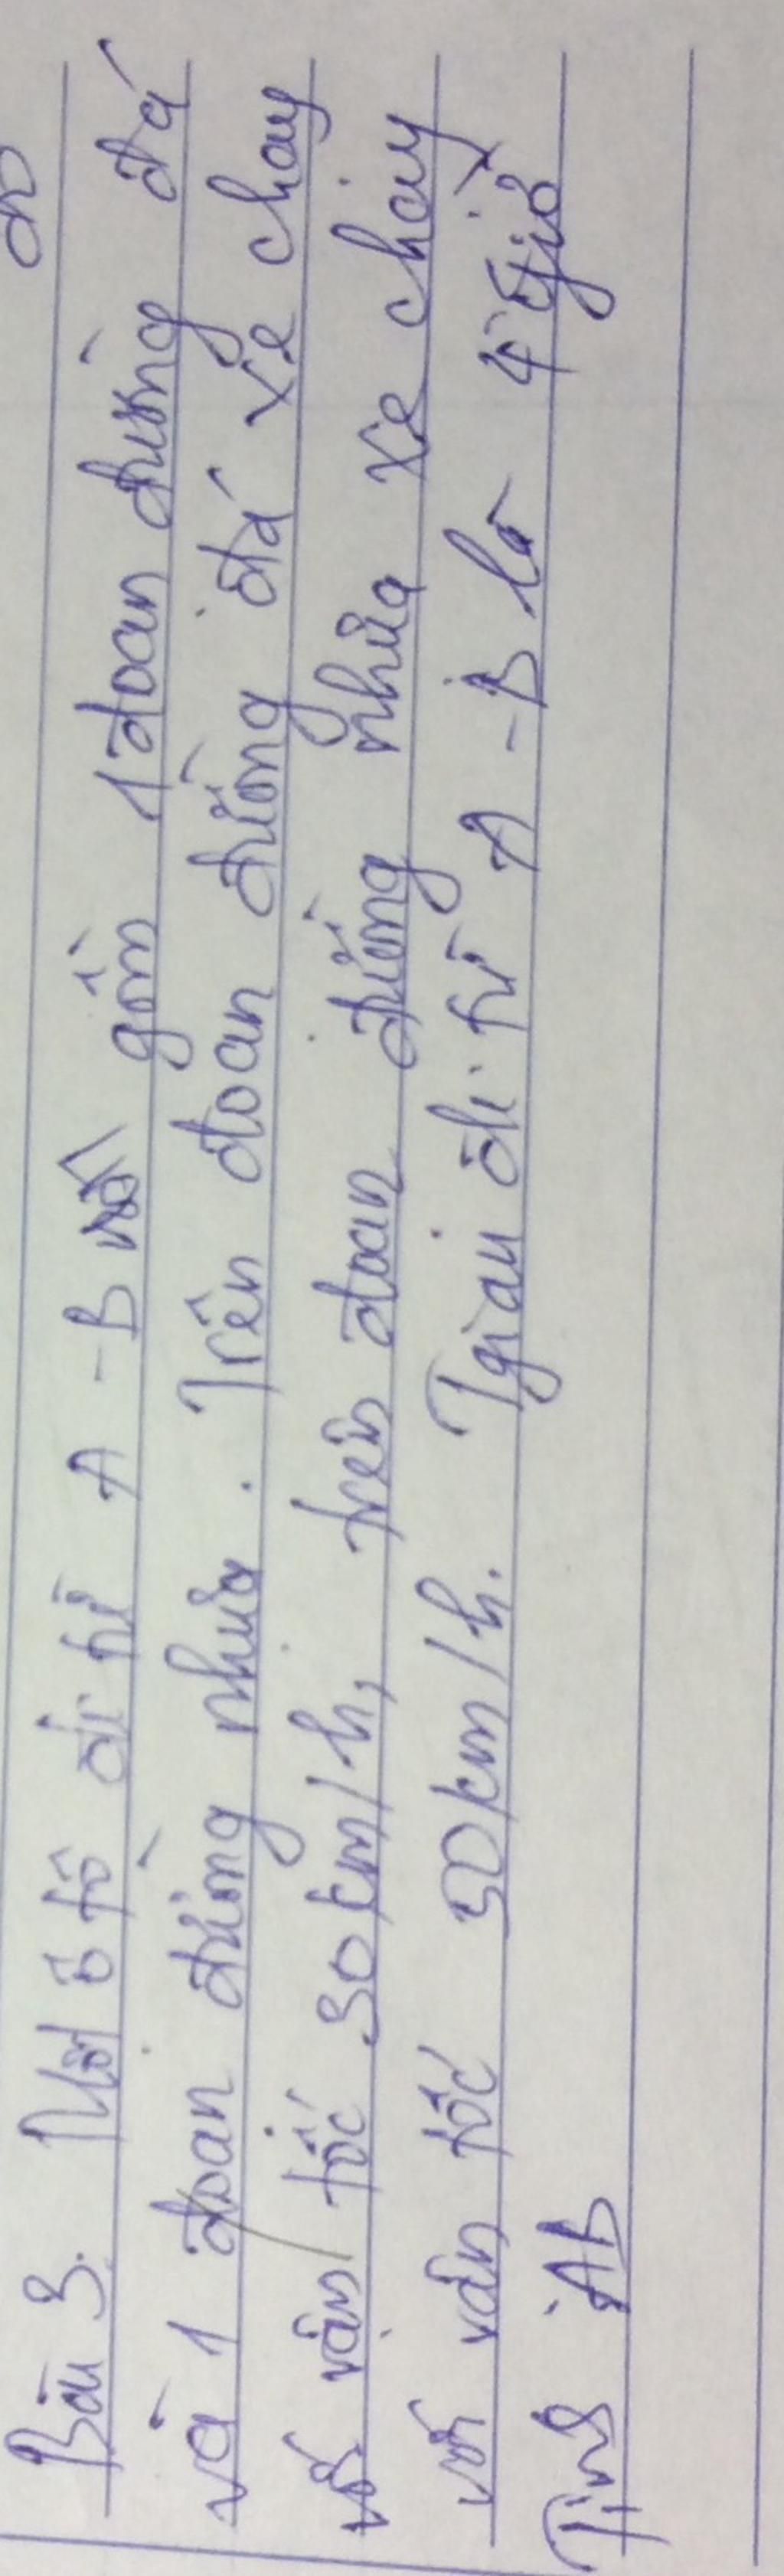 Bài 3. Một ô tô đi từ A - B gồm 1 đoạn đường đá
và 1 đoạn đường nhựa. Trên đoạn đường đá xe chạy
với vận tốc 30km/h, trên đoạn đường nhựa xe chạy
với vận tốc 50km/h. Tgian đi từ A - B là 4 giờ
Tính AB